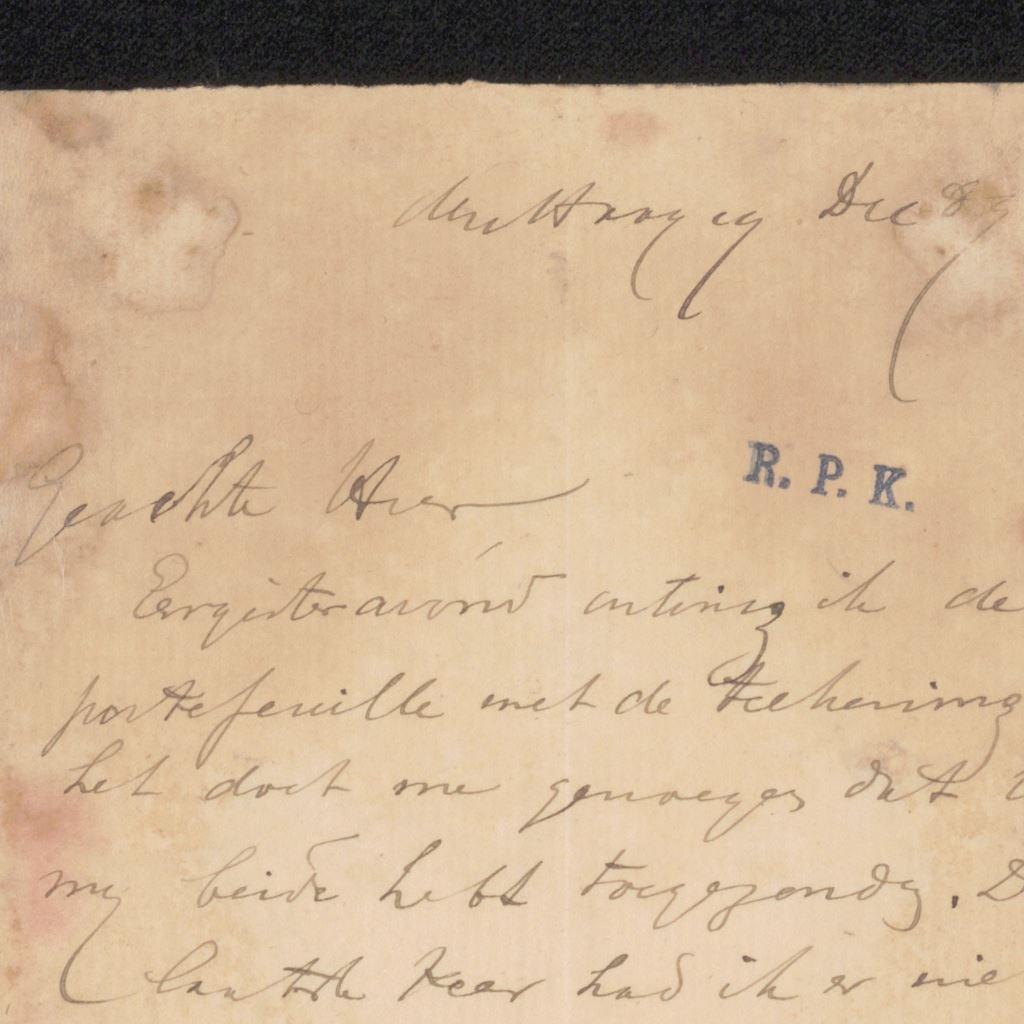 den Haag 19 Dec 89
Geachte Heer
R. P. K.
Eergisteravond ontving ik de
portefeuille met de teekening
het doet me genoegen dat
my beide hebt toegezonden. D
laatste keer had ik er nie